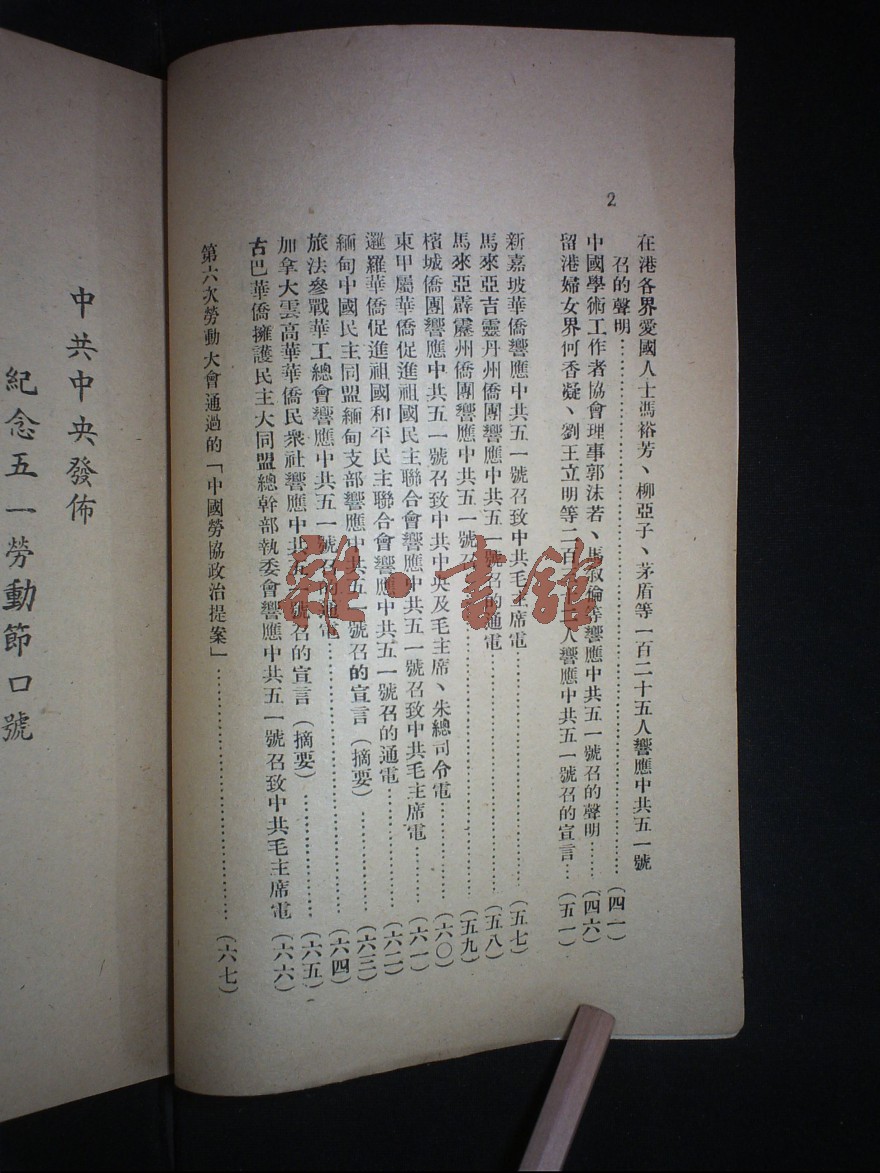 2
在港各界愛國人士馮裕芳、柳亞子、茅盾等一百二十五人響應中共五一號
召的聲明……(四二)
中國學術工作者協會理事郭沫若、馬叙倫等響應中共五一號召的聲明……(四六)
留港婦女界何香凝、劉王立明等二百 二人響應中共五一號召的宣言…(五一)
新嘉坡華僑響應中共五一號召致中共毛主席電……(五七)
馬來亞吉靈丹州僑團響應中共五一號召的通電……(五八)
馬來亞霹靂州僑團響應中共五一號召 ……(五九)
檳城僑團響應中共五一號召致中共中央及毛主席、朱總司令電……(六〇)
東甲屬華僑促進祖國民主聯合會響應中共五一號召致中共毛主席電……(六一)
暹羅華僑促進祖國和平民主聯合會響應中共五一號召的通電……(六二)
緬甸中國民主同盟緬甸支部響應中共五一號召的宣言(摘要)……(六三)
旅法參戰華工總會響應中共五一號召的通電……(六四)
加拿大雲高華華僑民衆社響應中共五一號召的宣言(摘要)……(六五)
古巴華僑擁護民主大同盟總幹部執委會響應中共五一號召致中共毛主席電(六六)
第六次勞動大會通過的「中國勞協政治提案」……(六七)
中共中央發佈
紀念五一勞動節口號
雜·書館